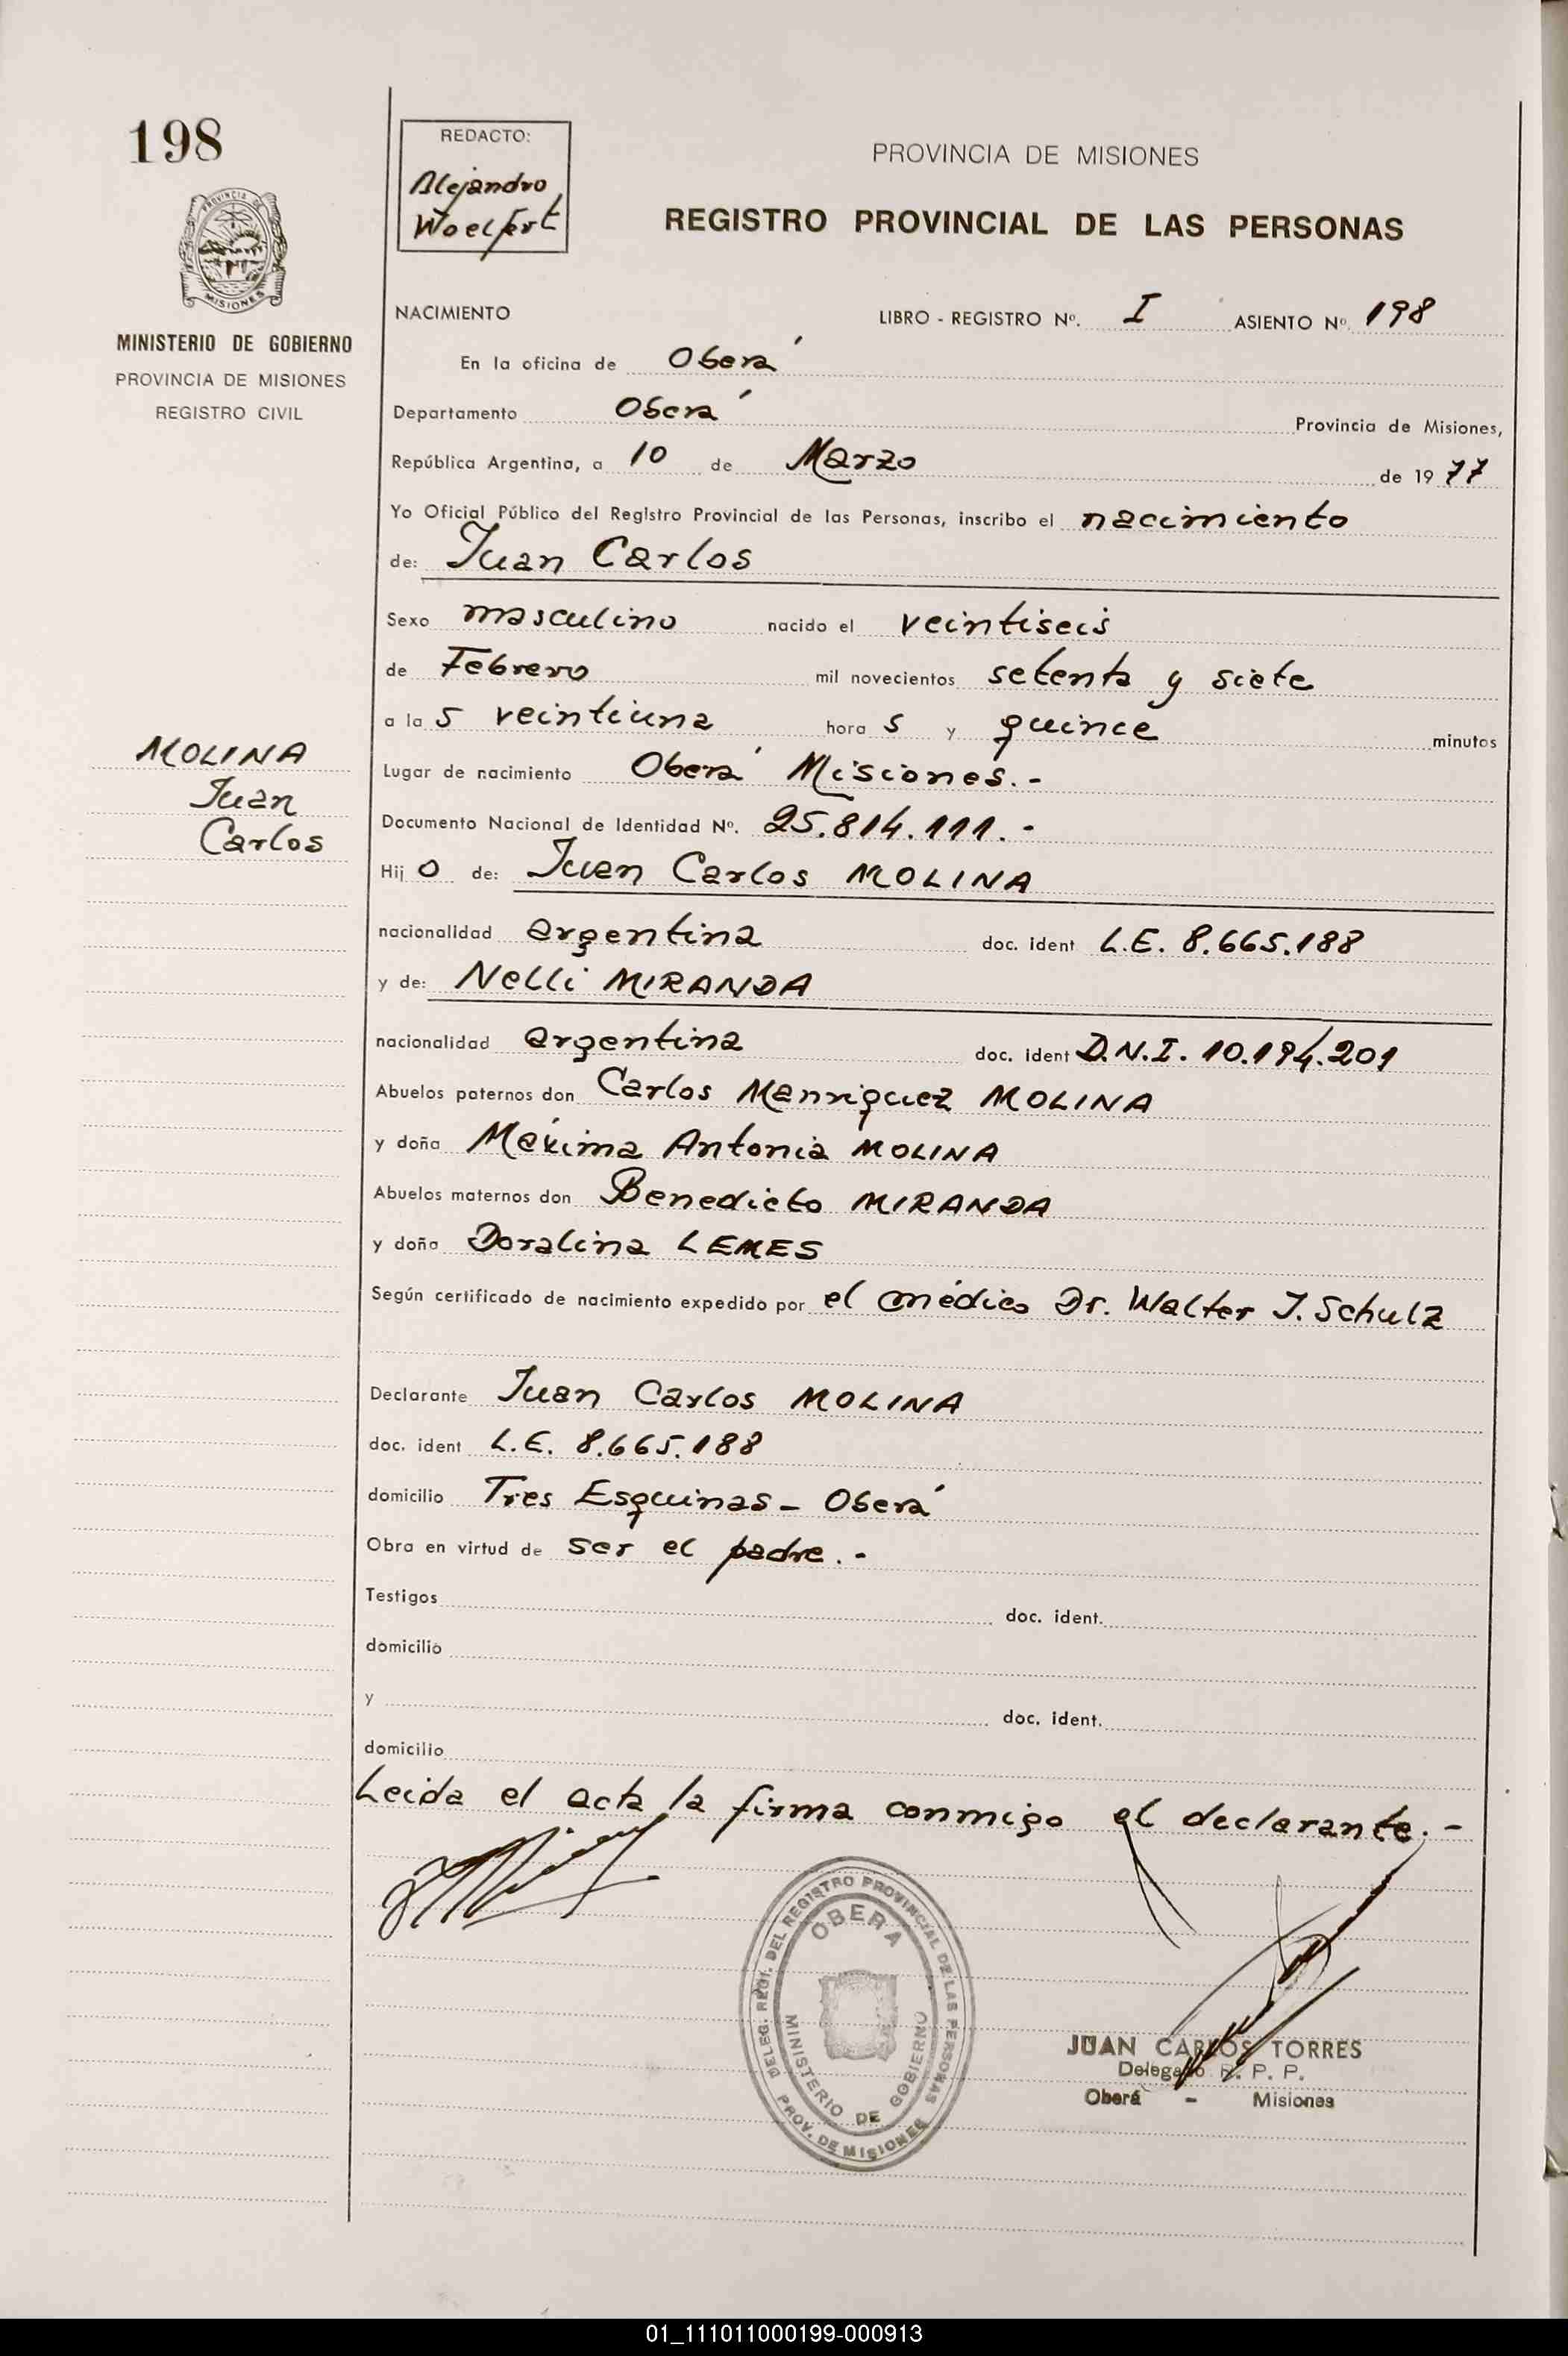 198
REDACTO:
Alejandro
Woelfert
PROVINCIA DE MISIONES
REGISTRO PROVINCIAL DE LAS PERSONAS
PROVINCIA DE
MISIONES
MINISTERIO DE GOBIERNO
PROVINCIA DE MISIONES
REGISTRO CIVIL
NACIMIENTO LIBRO - REGISTRO Nº. I ASIENTO Nº. 198
En la oficina de Oberá
Departamento Oberá Provincia de Misiones,
República Argentina, a 10 de Marzo de 1977
Yo Oficial Público del Registro Provincial de las Personas, inscribo el nacimiento
de: Juan Carlos
Sexo masculino nacido el veintiseis
de Febrero mil novecientos setenta y siete
a las veintiuna horas y quince minutos
MOLINA
Juan
Carlos
Lugar de nacimiento Oberá Misiones.-
Documento Nacional de Identidad Nº. 25.814.111.-
Hijo de: Juan Carlos MOLINA
nacionalidad argentina doc. ident L.E. 8.665.188
y de: Nelli MIRANDA
nacionalidad argentina doc. ident D.N.I. 10.194.201
Abuelos paternos don Carlos Manriquez MOLINA
y doña Máxima Antonia MOLINA
Abuelos maternos don Benedicto MIRANDA
y doña Doralina LEMES
Según certificado de nacimiento expedido por el médico Dr. Walter J. Schulz
Declarante Juan Carlos MOLINA
doc. ident L.E. 8.665.188
domicilio Tres Esquinas - Oberá
Obra en virtud de ser el padre.-
Testigos doc. ident.
domicilio
y doc. ident.
domicilio
Leida el acta la firma conmigo el declarante.-
DELEG. REGI. DEL REGISTRO PROVINCIAL DE LAS PERSONAS
OBERA
MINISTERIO DE GOBIERNO
PROV. DE MISIONES
JUAN CARLOS TORRES
Delegado R. P. P.
Oberá - Misiones
01_111011000199-000913